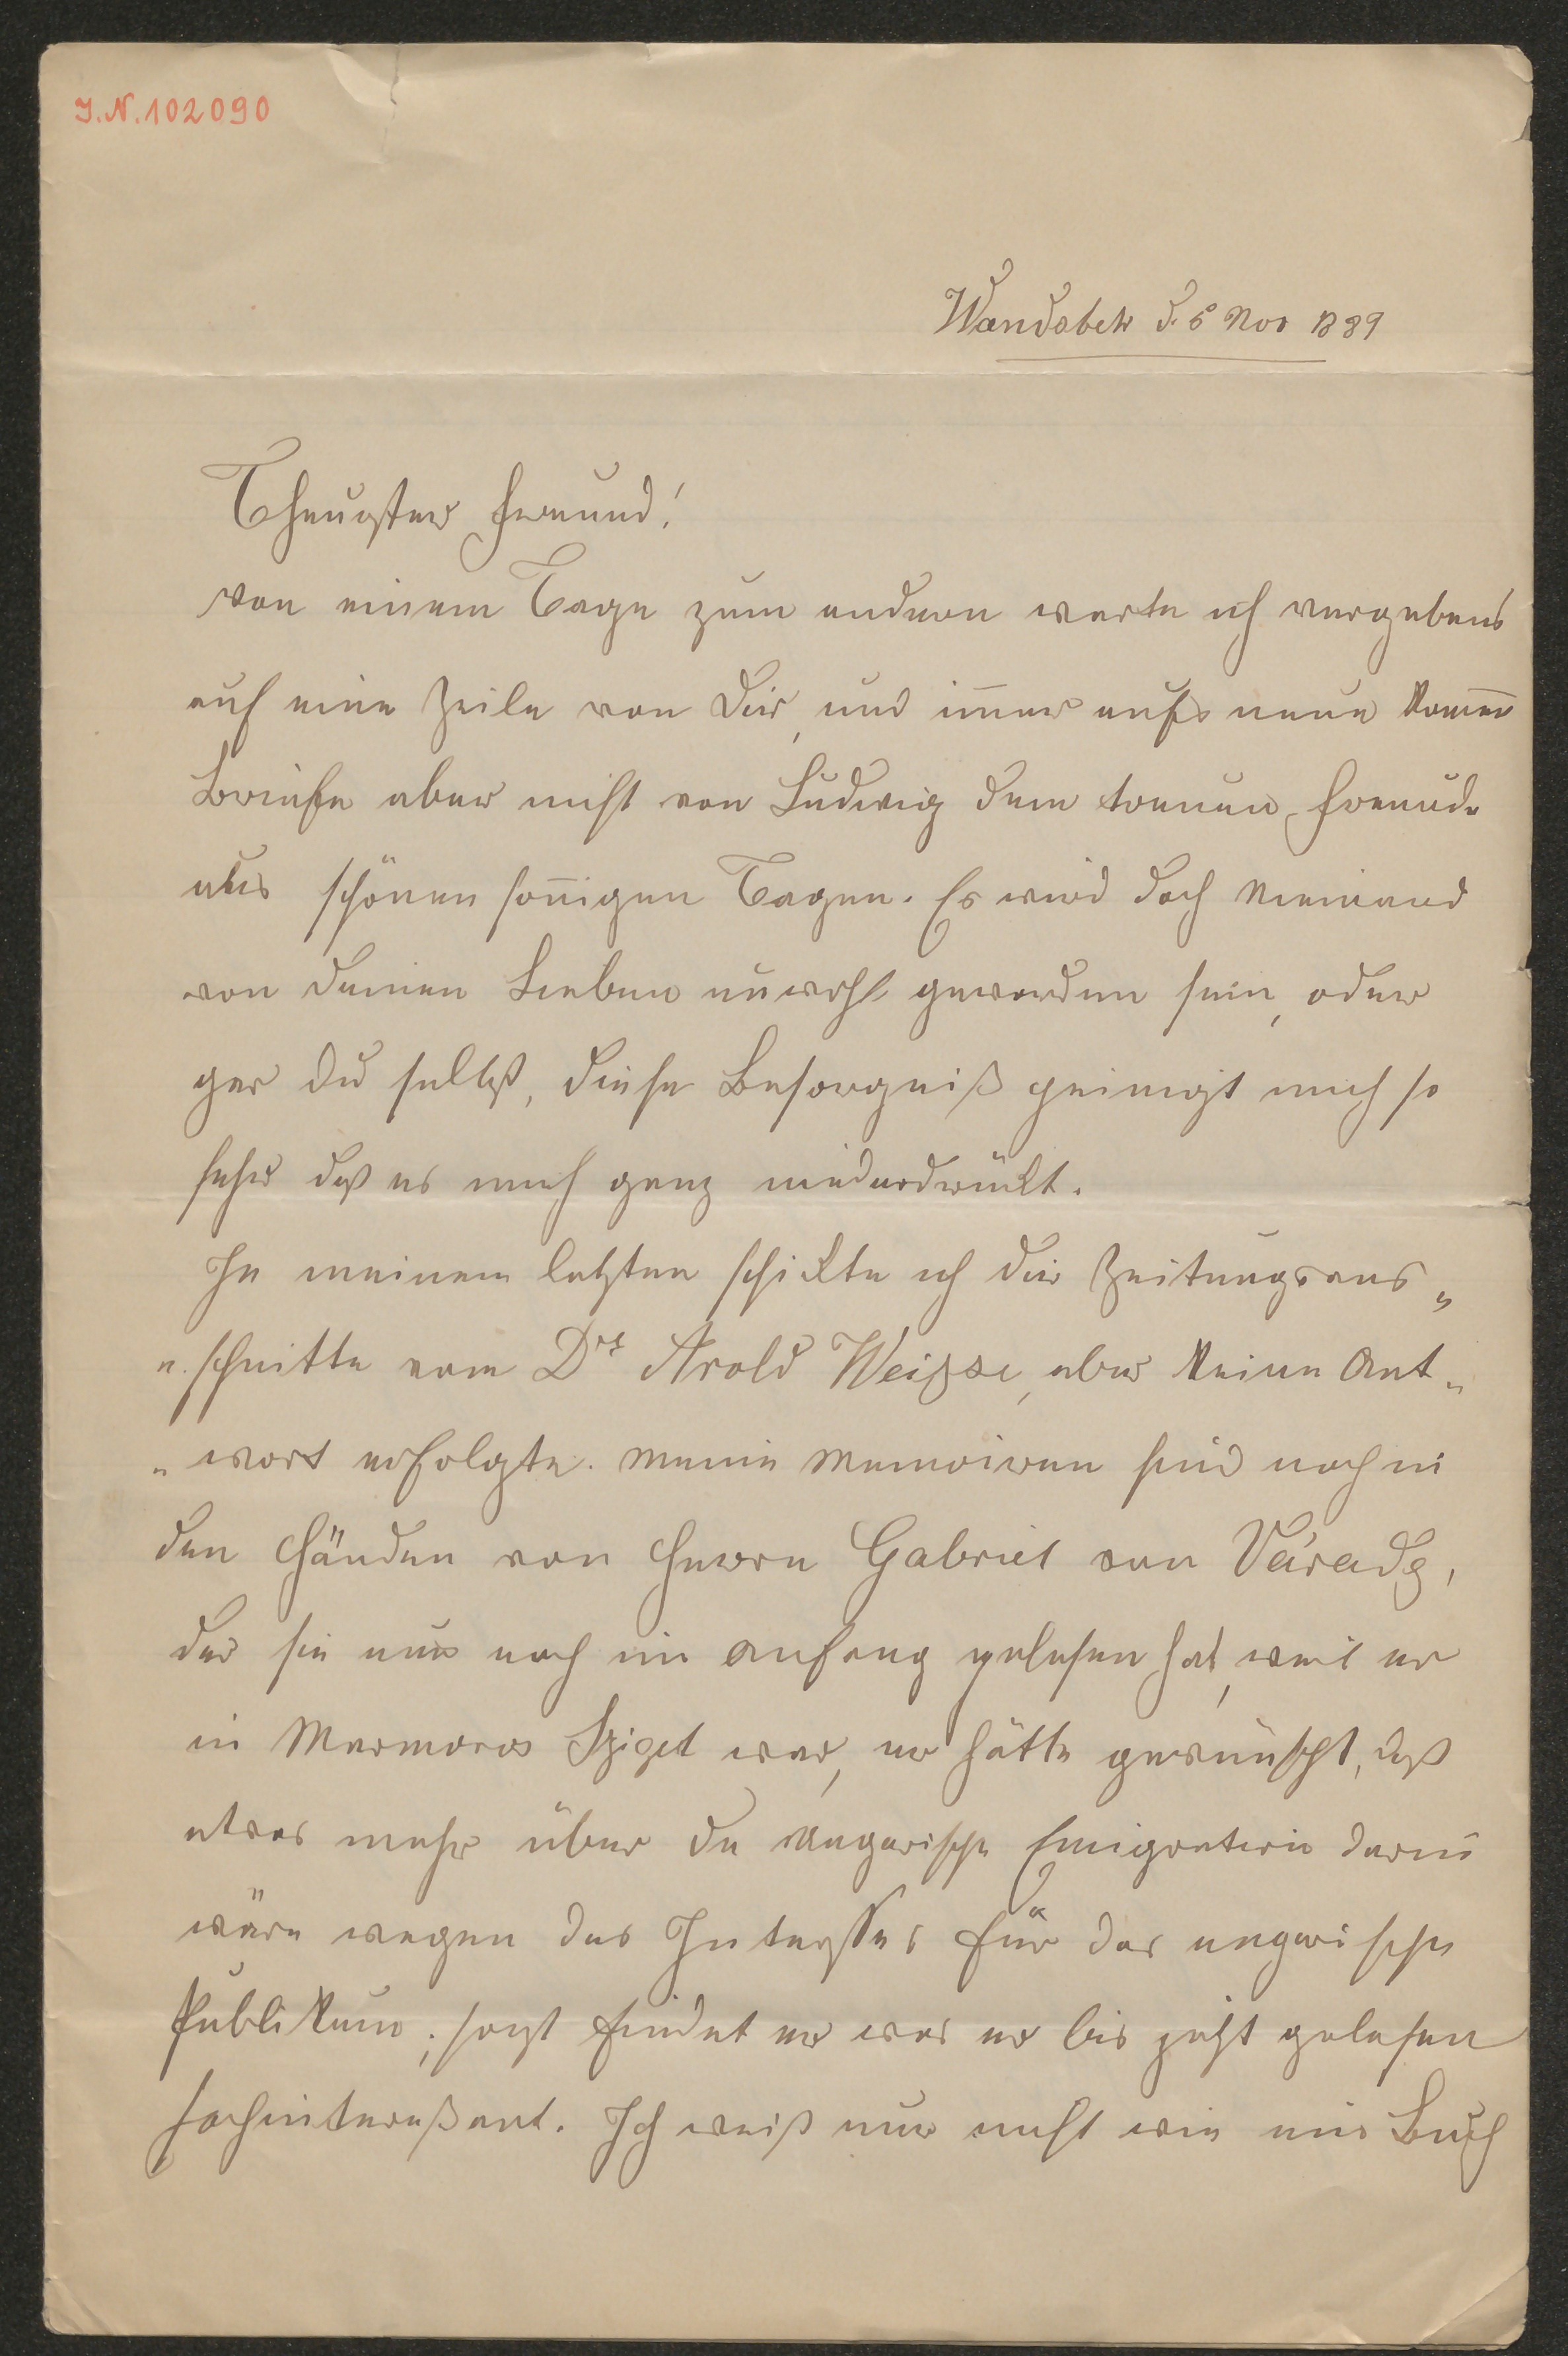 J.N. 102090
Wandsbek d. 5 Nov 1889
Theuerster Freund!
von einem Tage zum andern warte ich vergebens
auf eine Zeile von Dir, und im̄er aufs neue kom̄en
Briefe aber nicht von Ludwig dem treuen Freunde
aus schönen son̄igen Tagen. Es wird doch niemand
von deinen Lieben unwohl geworden sein, oder
gar du selbst, diese Besorgniß peinigt mich so
sehr daß es mich ganz niederdrückt.
In meinem letzten schickte ich dir Zeitungsaus„
„schnitte vom Dr Arold Weiße, aber keine Ant„
„wort erfolgte. Meine Memoiren sind noch in
den Händen von Herrn Gabriel von Várady,
der sie nur noch im Anfang gelesen hat, weil er
in Marmaros Sziget war, er hätte gewünscht, daß
etwas mehr über die ungarische Emigration darin
wäre wegen des Interesses für das ungarische
Publikum; sonst findet er was er bis jetzt gelesen
hochinteressant. Ich weiß nur nicht wie ein Buch